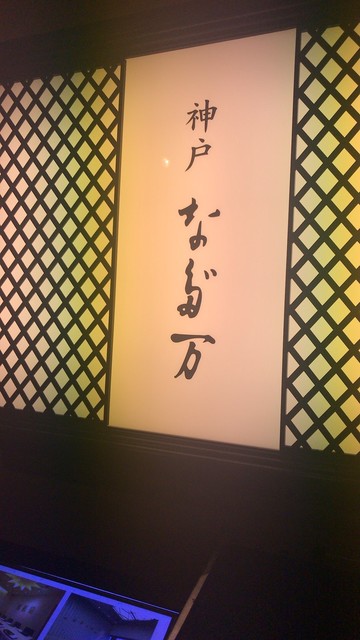 神戸 なだ万